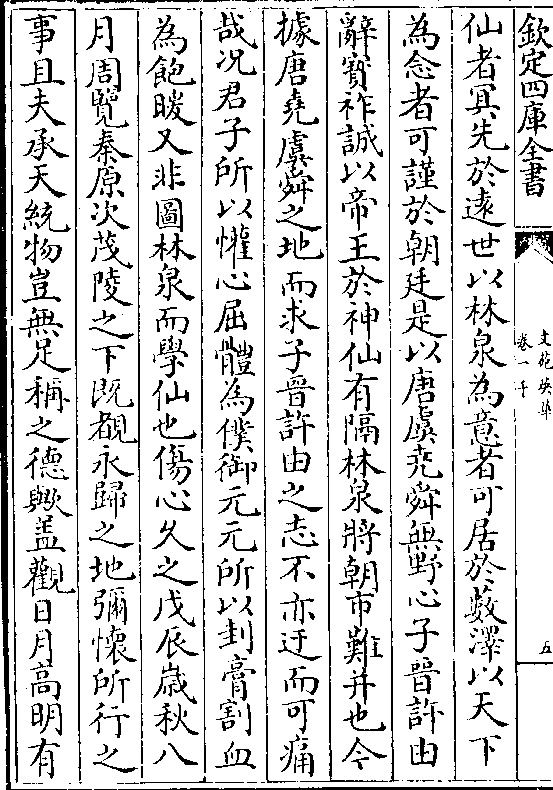 欽定四庫全書
文苑英華
卷一千
五
仙者冥先於遠世以林泉為意者可居於藪澤以天下
為念者可謹於朝廷是以唐虞堯舜無野心子晉許由
辭寳祚誠以帝王於神仙有隔林泉將朝市難并也今
據唐堯虞舜之地而求子晉許由之志不亦迂而可痛
哉况君子所以懽心屈體為僕御元元所以刲膏割血
為飽暖又非圖林泉而學仙也傷心久之戊辰嵗秋八
月周覽秦原次茂陵之下既覩永歸之地彌懷所行之
事且夫承天統物豈無足稱之德歟盖觀日月高明有